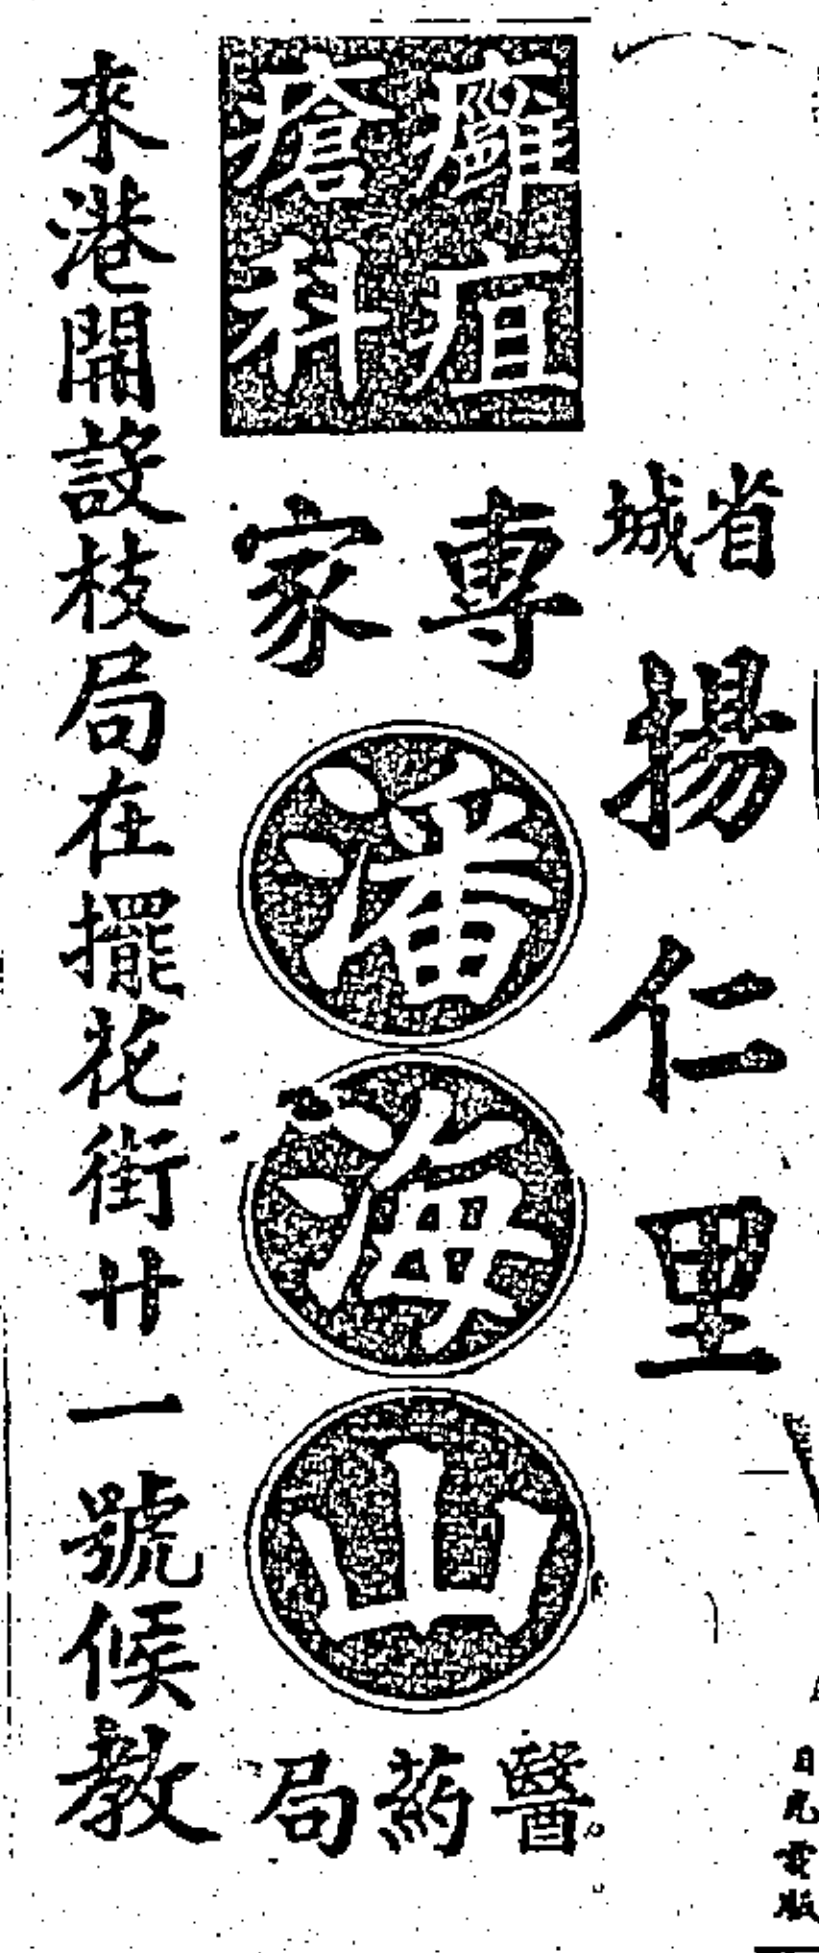 省城
揚仁里
癰疽
瘡科
專家
潘海山
醫葯局
來港開設枝局在擺花街廿一號候教